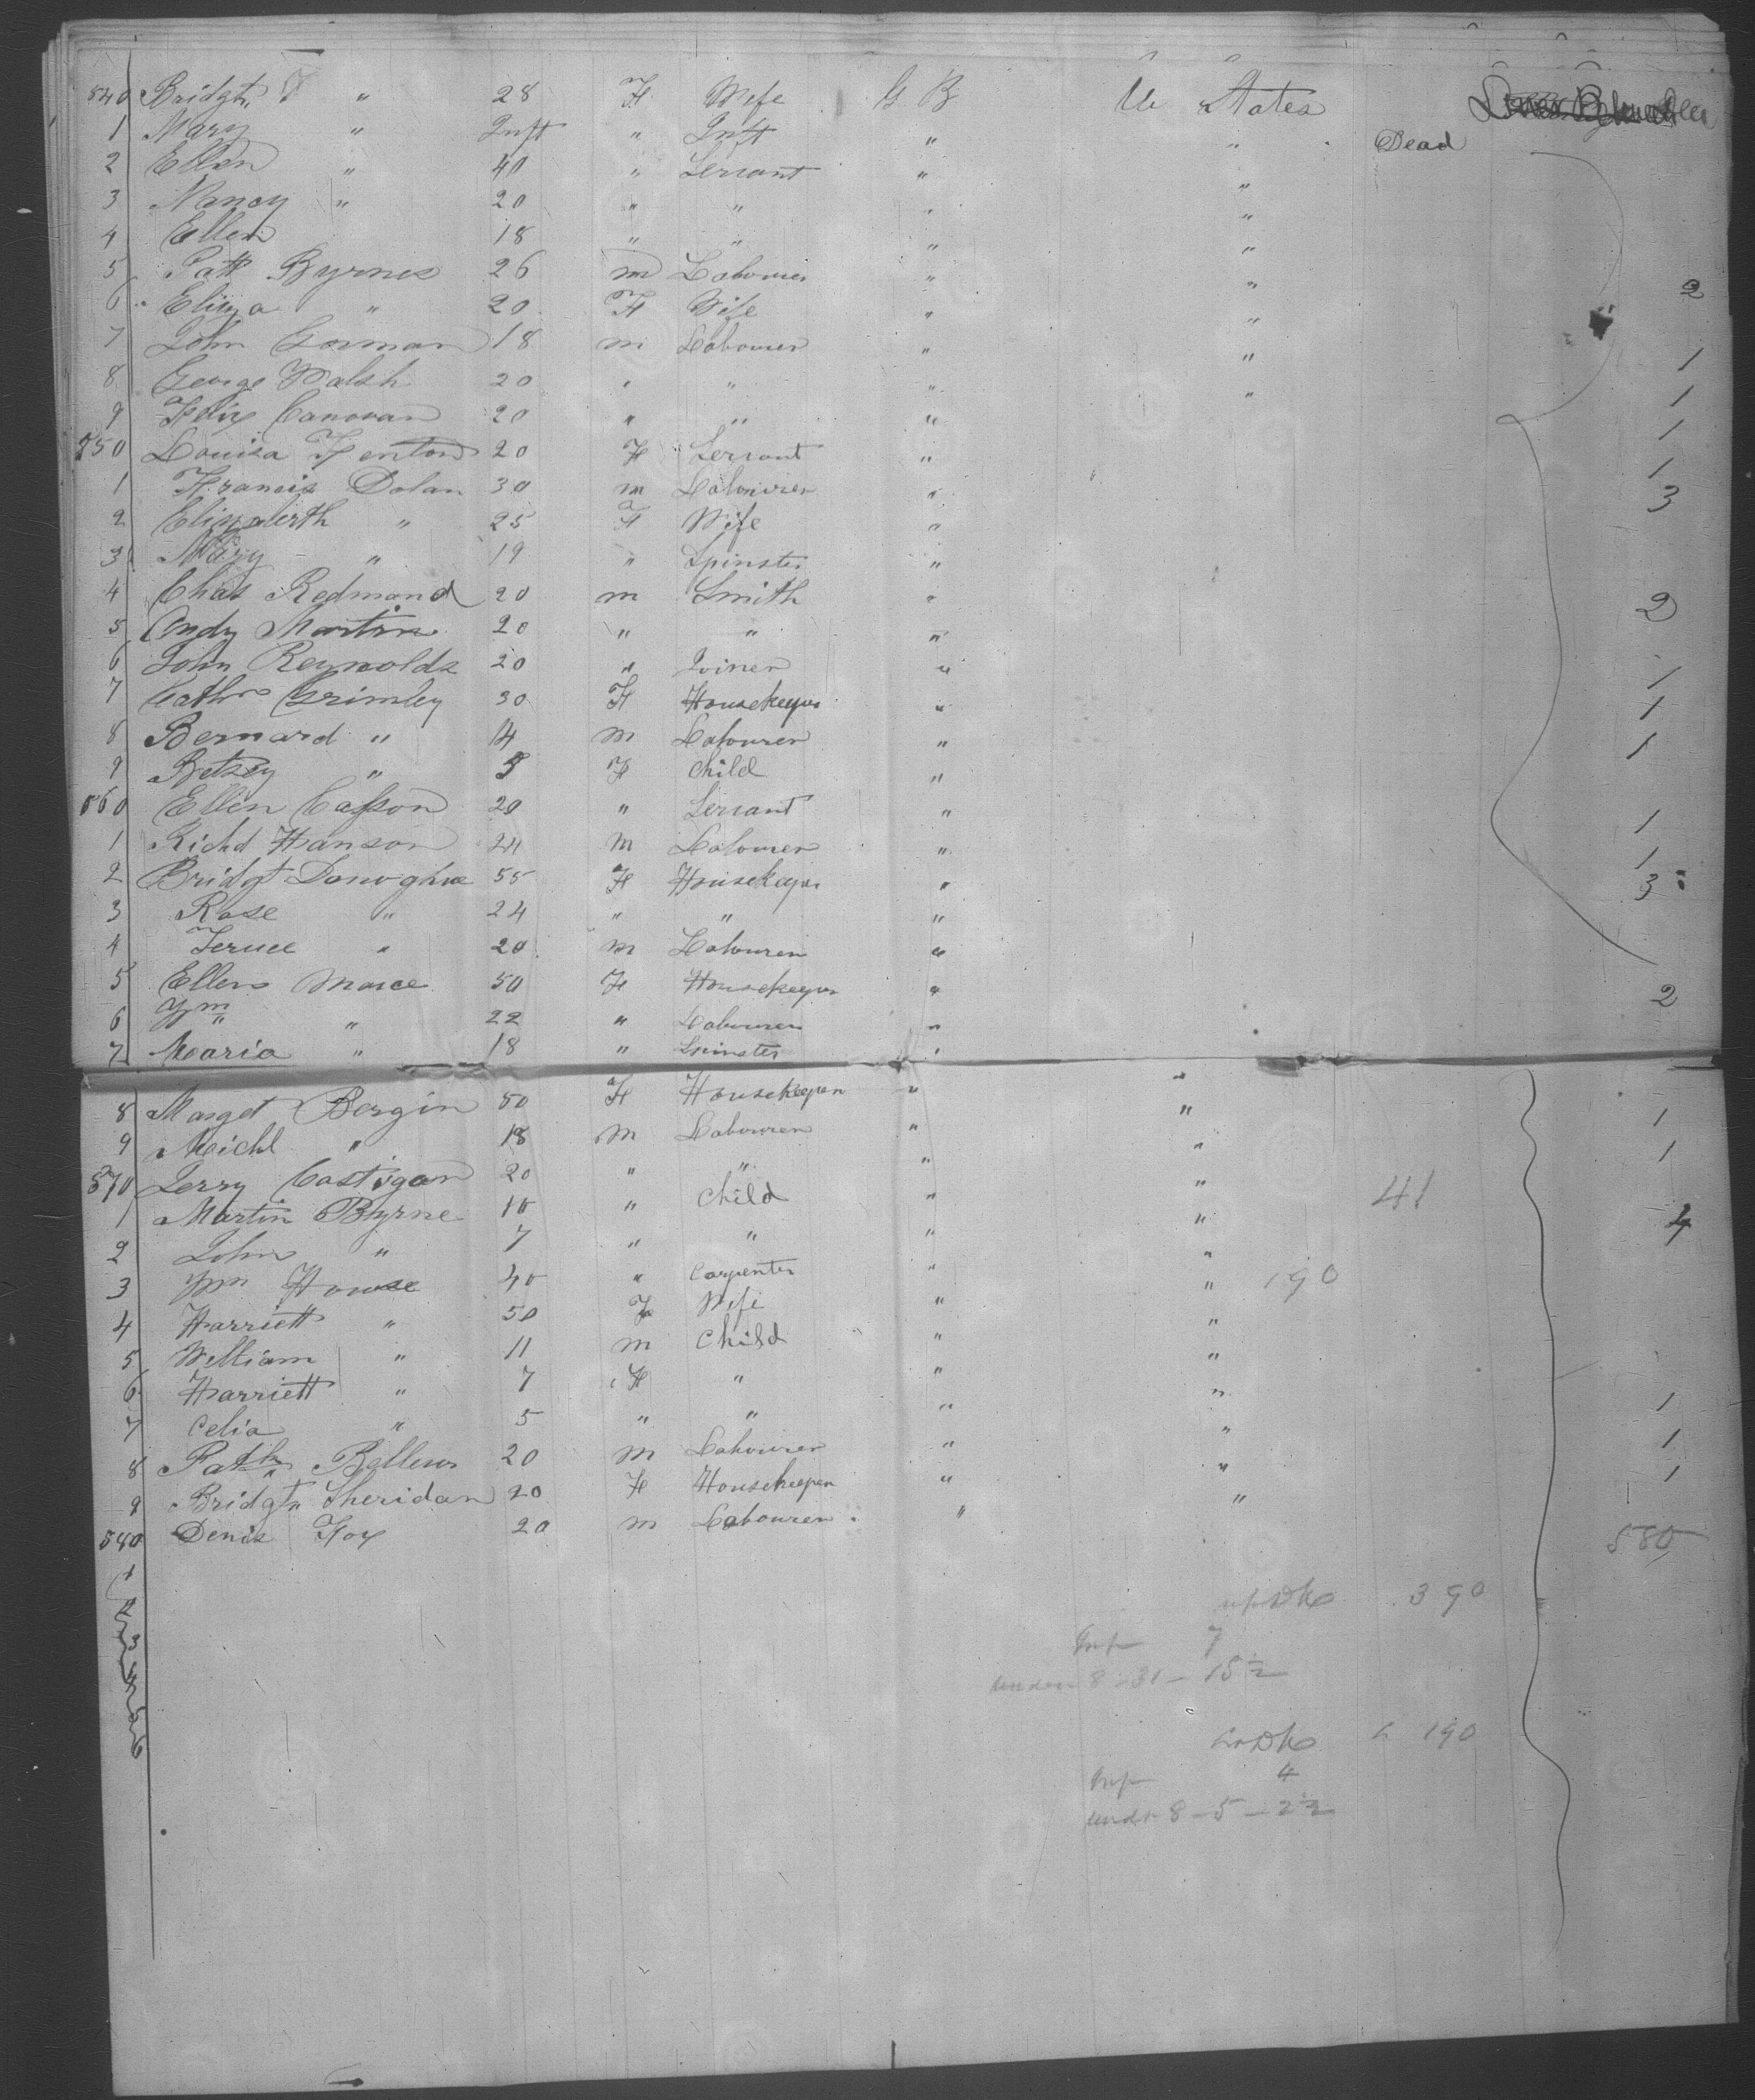 540 Bridgt " 28 F Wife G B U States
1 Mary " Inft " Inft " " Dead
2 Ellen " 40 " Servant " "
3 Nancy " 20 " " " "
4 Ellen 18 " " " "
5 Patk Byrnes 26 m Labourer " " 2
6 Eliza " 20 F Wife " "
7 John Gorman 18 m Labourer " " 1
8 George Walsh 20 " " " " 1
9 Felix Canovan 20 " " " 1
550 Louisa Fenton 20 F Servant " 1
1 Francis Dolan 30 m Labourer " 3
2 Elizabeth " 25 F Wife "
3 Mary " 19 " Spinster "
4 Chas Redmond 20 m Smith " 2
5 Andy Martin 20 " " "
6 John Reynolds 20 " Joiner " 1
7 Cathn Grimley 30 F Housekeeper " 1
8 Bernard " 14 m Labourer " 1
9 Betsey " 3 F Child "
560 Ellen Casson 20 " Servant " 1
1 Richd Hanson 24 m Labourer " 1
2 Bridgt Donoghue 55 F Housekeeper " 3
3 Rose " 24 " " "
4 " 20 m Labourer "
5 Ellen 50 F Housekeeper " 2
6 Wm " 22 " Labourer "
7 Maria " 18 " Spinster "
8 Marget Bergin 50 F Housekeeper " "
9 Michl " 18 m Labourer " " 1
570 Jerry Costigan 20 " " " " 1
1 Martin Byrne 10 " Child " " 41
2 John " 7 " " " " 4
3 Wm House 40 " Carpenter " " 190
4 Harriett " 50 F Wife " "
5 William " 11 m Child " "
6 Harriett " 7 F " " "
7 Celia " 5 " " " " 1
8 Patk Bellew 20 m Labourer " " 1
9 Bridgt Sheridan 20 F Housekeeper " " 1
580 Denis Fox 20 m Labourer " " 1
580
upDk 390
Inf 7
under 8 - 31 - 15½
LoDk 190
Inf 4
undr 8 - 5 - 2½